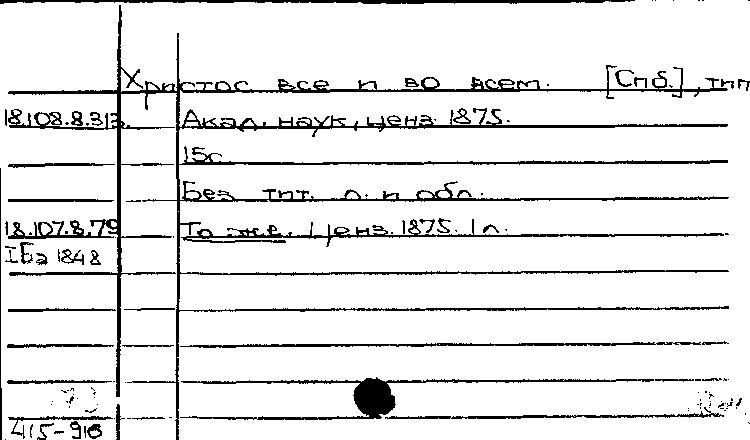 Христос все и во всем. [Спб.], тип
18.108.8.313. Акад. наук, ценз. 1875.
15с.
Без тит. л. и обл.
18.107.8.79 То же. Ценз. 1875. 1л.
IБэ 1848
415-916